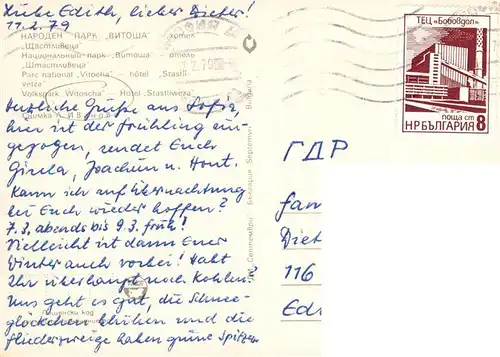 Liebe Edith, lieber Dieter!
11.2.79
НАРОДЕН ПАРК „ВИТОША" хотел
„Щастливеца"
Национальный парк „Витоша" отель
„Штастливеца"
Parc national „Vitocha" hôtel „Stastli-
vetza"
Volkspark „Witoscha" Hotel „Stastliweza"
Снимка
Herzliche Grüße aus Sofia,
hier ist der Frühling ein-
gezogen, sendet Euch
Gisela, Joachim u. Horst.
Kann ich auf Übernachtung
bei Euch wieder hoffen?
7.3. abends bis 9.3. früh!
Vielleicht ist dann Euer
Winter auch vorbei! Habt
Ihr überhaupt noch Kohlen?
Uns geht es gut, die Schnee-
glöckchen blühen und die
Fliederzweige haben grüne Spitzen
Пощенски код
ДП Септември България Septemvri Bulgaria
ТЕЦ „Бобовдол"
поща ст 8
НР БЪЛГАРИЯ
ГДР
Fam
Diet
116
Edi